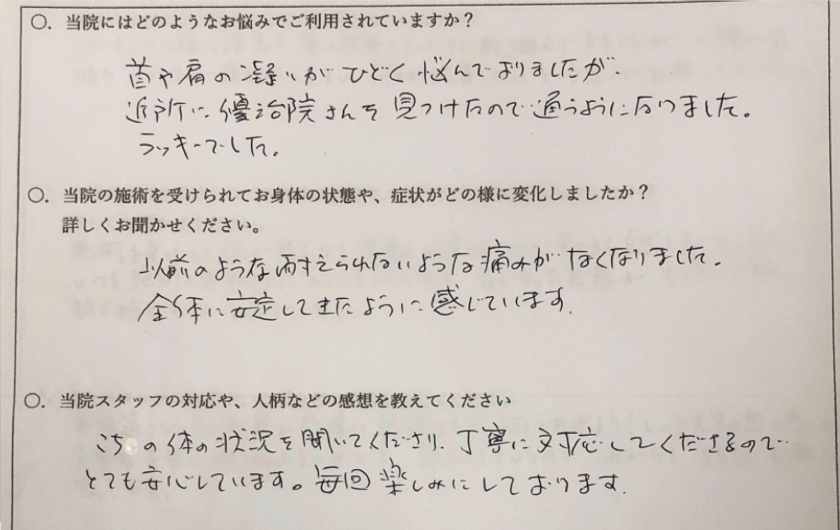 〇．当院にはどのようなお悩みでご利用されていますか？
首や肩の凝りがひどく悩んでおりましたが、
近所に優治院さんを見つけたので通うようになりました。
ラッキーでした。
〇．当院の施術を受けられてお身体の状態や、症状がどの様に変化しましたか？
詳しくお聞かせください。
以前のような耐えられないような痛みがなくなりました。
全体に安定してきたように感じています。
〇．当院スタッフの対応や、人柄などの感想を教えてください
の体の状況を聞いてくださり、丁寧に対応してくださるので
とても安心しています。毎回楽しみにしております。